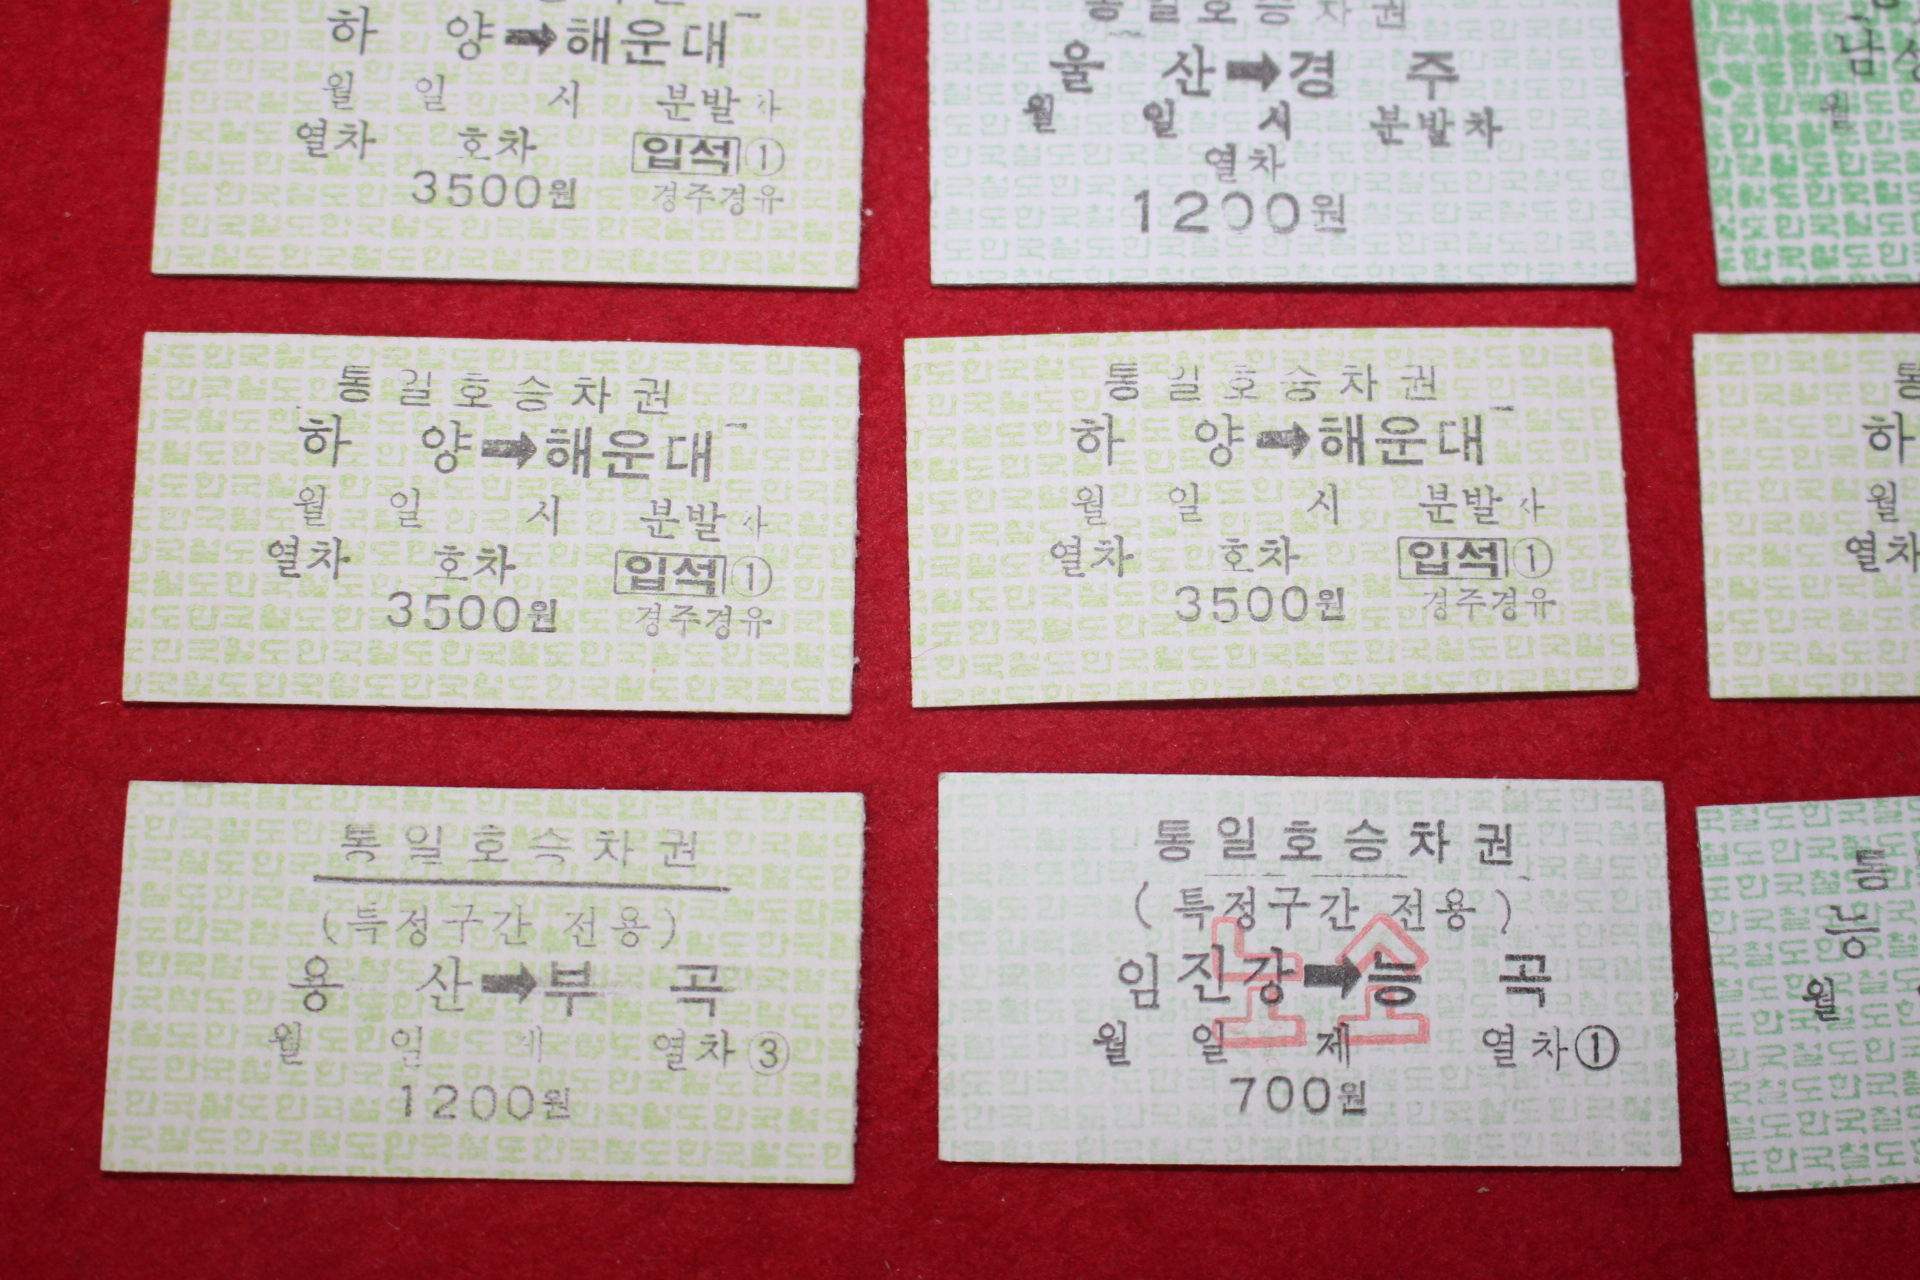 하 양➡해운대
월 일 시 분발차
열차 호차 입석 ①
3500원 경주경유
통일호승차권
울 산➡경 주
월 일 시 분발차
열차
1200원
남성
월
통일호승차권
하 양➡해운대
월 일 시 분발차
열차 호차 입석 ①
3500원 경주경유
통일호승차권
하 양➡해운대
월 일 시 분발차
열차 호차 입석 ①
3500원 경주경유
통
하
월
열차
통일호승차권
(특정구간 전용)
용 산➡부 곡
월 일 제 열차 ③
1200원
통일호승차권
(특정구간 전용)
임진강➡능 곡
노소
월 일 제 열차 ①
700원
통
능
월